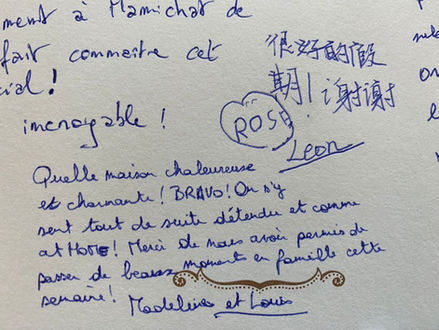 ment à Mamichat de
fait connaitre cet
cial !
incroyable !
很好的假
期！谢谢
ROSE
Leon
Quelle maison chaleureuse
et charmante ! BRAVO ! On s'y
sent tout de suite détendu et comme
at HOME ! Merci de nous avoir permis de
passer de beaux moments en famille cette
semaine ! Madeleine et Louis